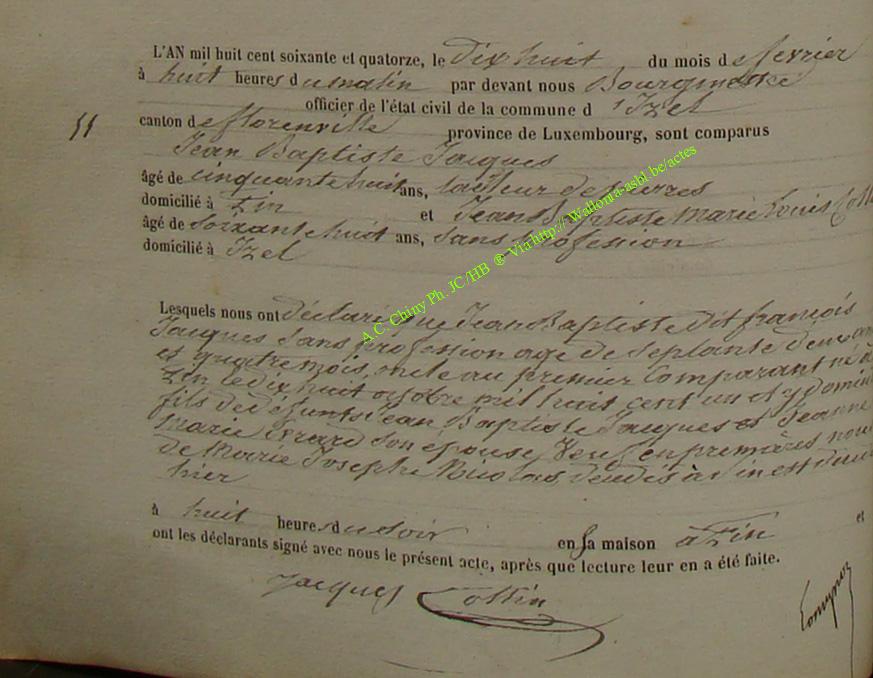 L'AN mil huit cent soixante et quatorze, le dix huit du mois de fevrier
à huit heures du matin par devant nous Bourgmestre
officier de l'état civil de la commune d'Izel
canton de florenville province de Luxembourg, sont comparus
Jean Baptiste Jacques
âgé de cinquante huit ans, tailleur de pierres
domicilié à Pin et Jean Baptiste Marie Louis
âgé de soixante huit ans, sans profession
domicilié à Izel
Lesquels nous ont déclaré que Jean Baptiste dit françois
Jacques sans profession age de septante deux ans
et quatre mois, oncle au premier comparant né à
Pin le dix huit octobre mil huit cent un et y
fils de défunts Jean Baptiste Jacques et Jeanne
Marie son épouse Veuf en premières
de Marie Josephe Nicolas à Pin est
hier
à huit heures du soir en sa maison à Pin et
ont les déclarants signé avec nous le présent acte, après que lecture leur en a été faite.
Jacques Collin
A.C. Chiny Ph. JC/HB ® Via http://Wallonia-asbl.be/actes